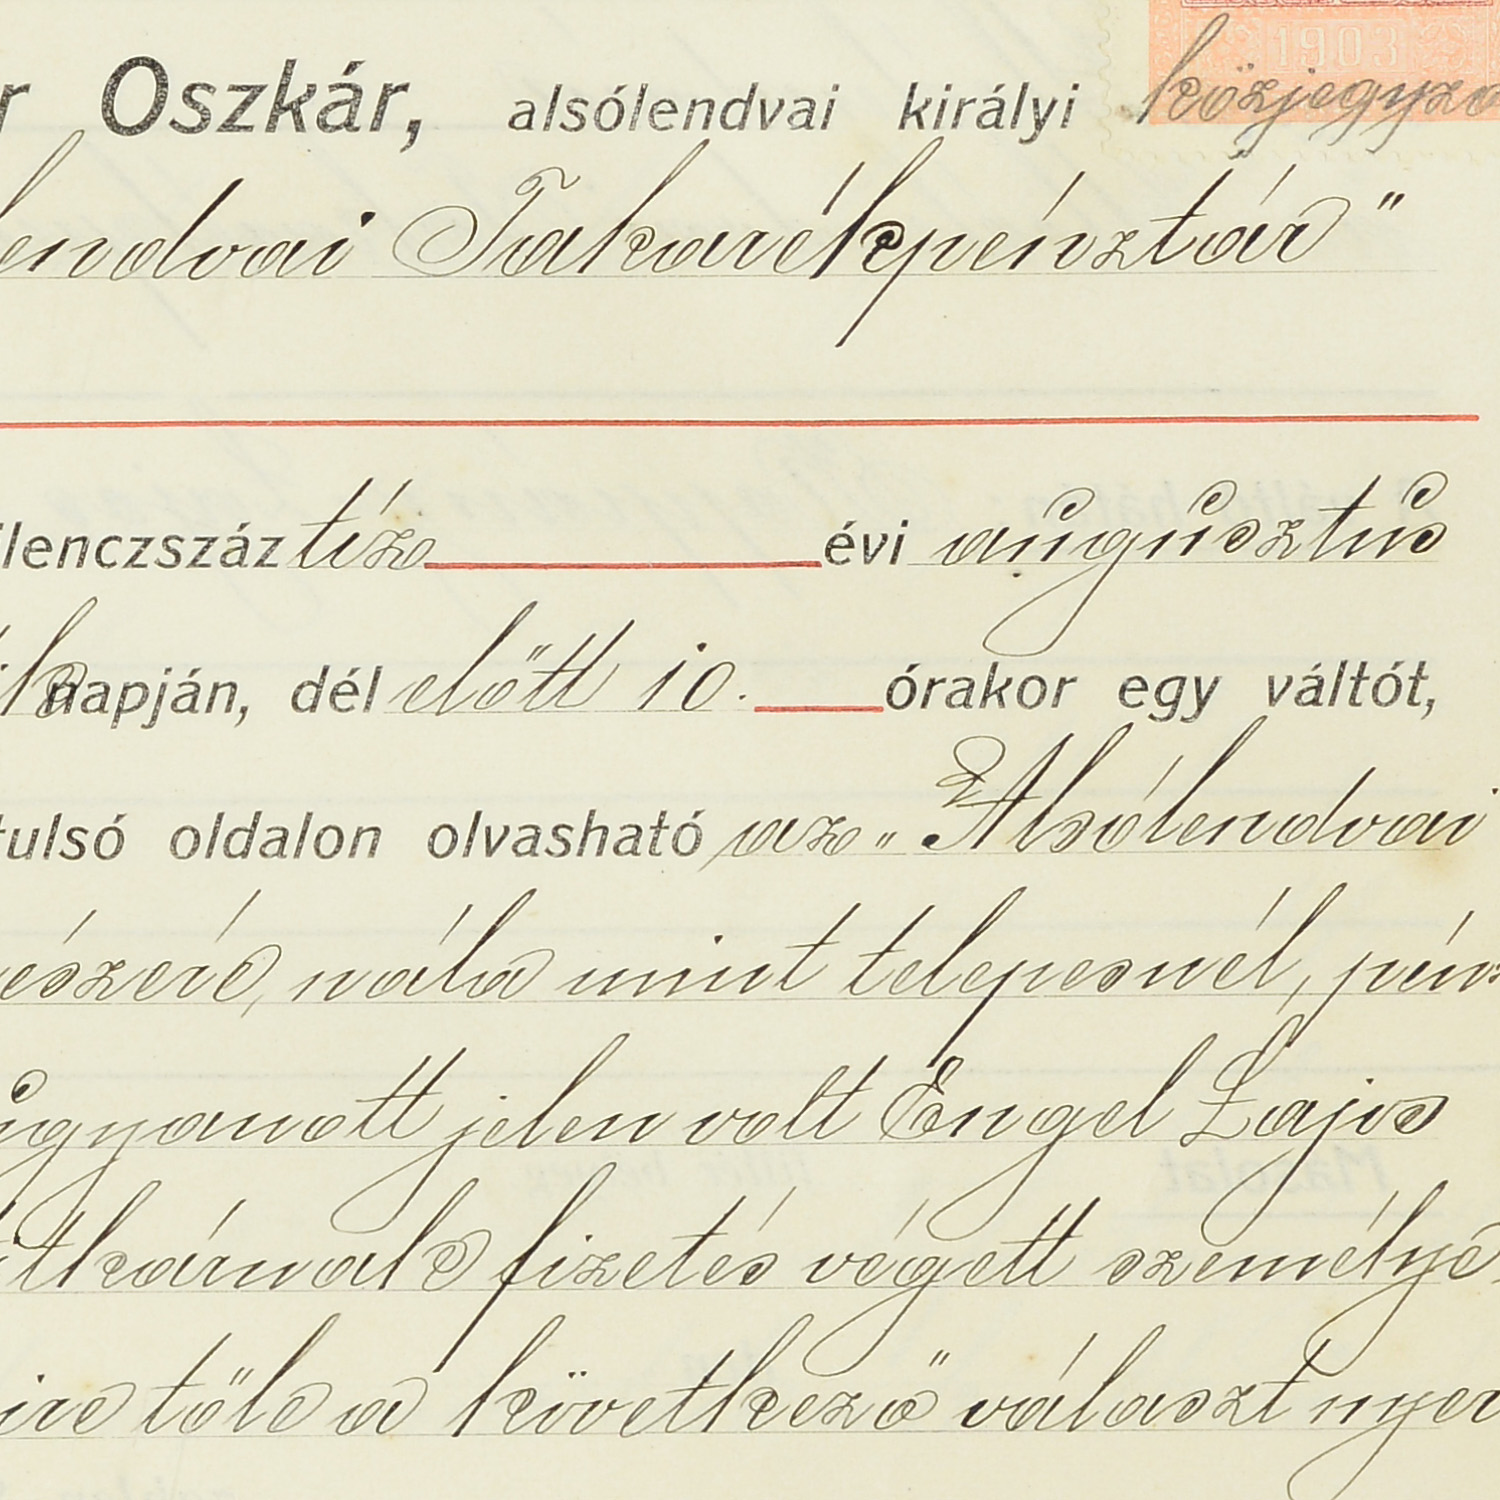 r Oszkár, alsólendvai királyi közjegyző
1903
lendvai Takarékpénztár"
ilenczszáz tíz évi augusztus
ik napján, dél előtt 10. órakor egy váltót,
tulsó oldalon olvasható az „Alsólendvai
részére, nála mint telepesnél, pénz
ugyanott jelen volt Engel Lajos
titkárnak fizetés végett személye
ire tőle a következő választ nyer